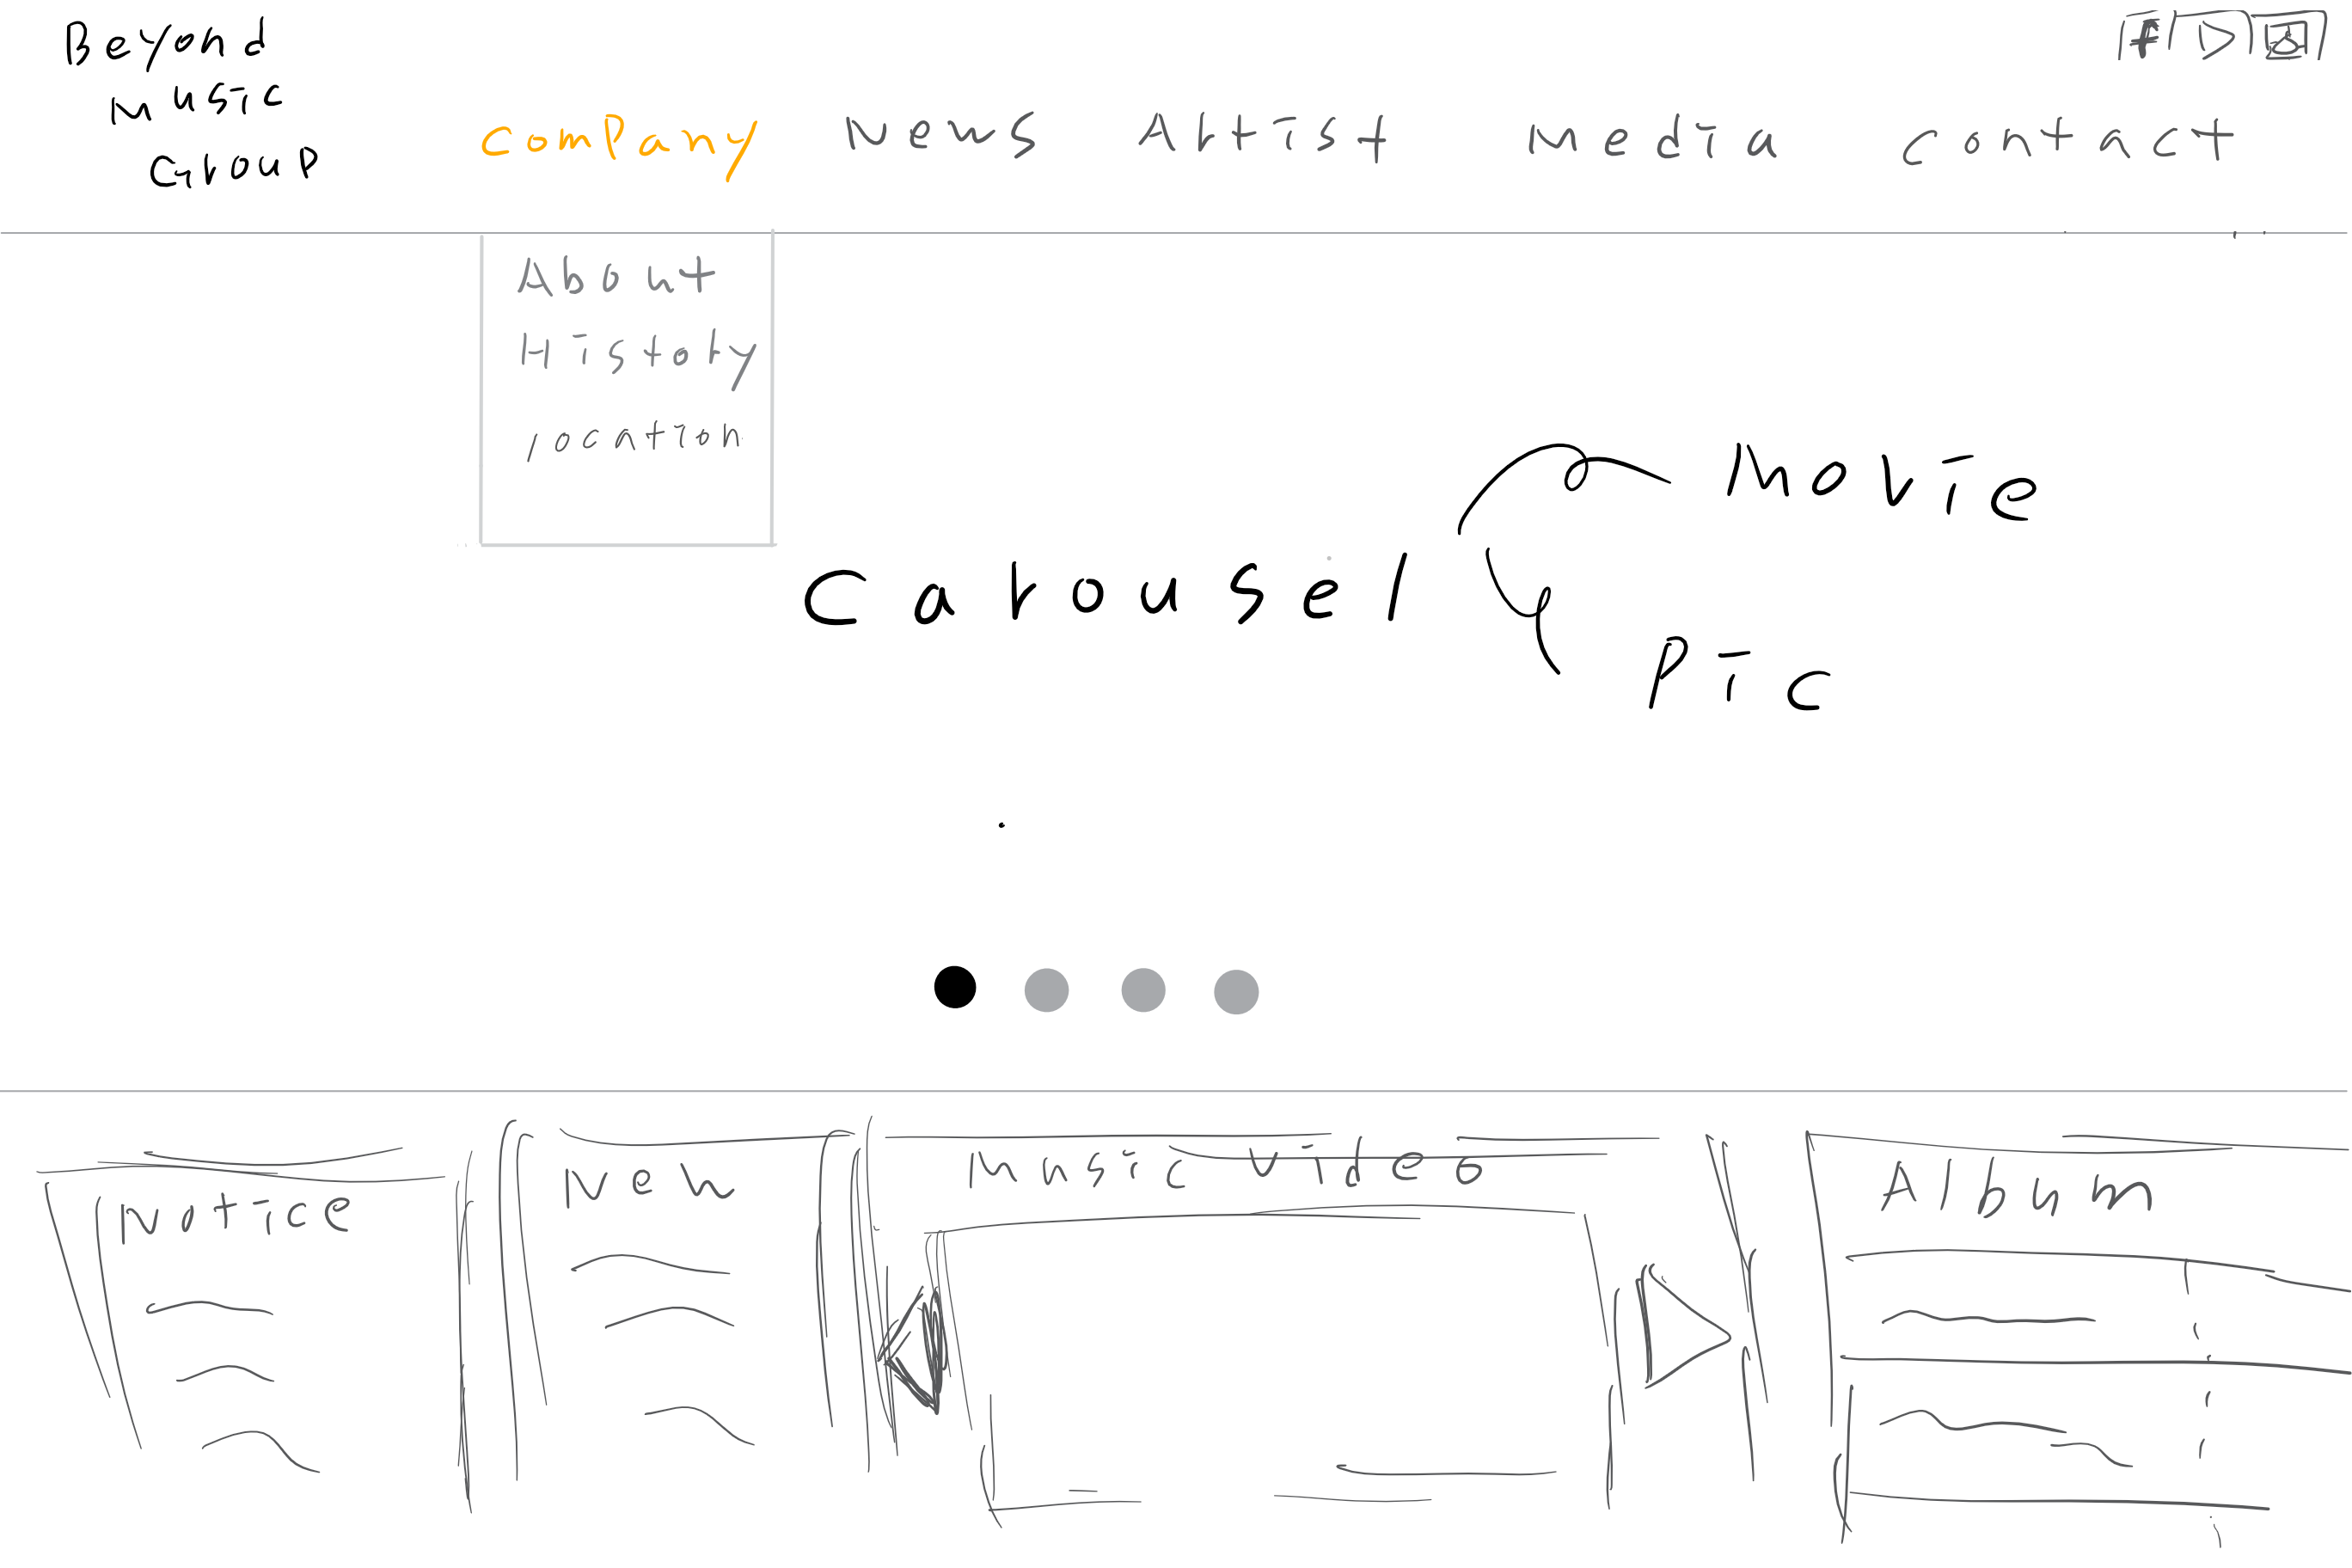 Beyond
Music
Group
Company News Artist Media contact
About
History
location
Carousel
Movie
Pic
Notice
New
Music Video
Album